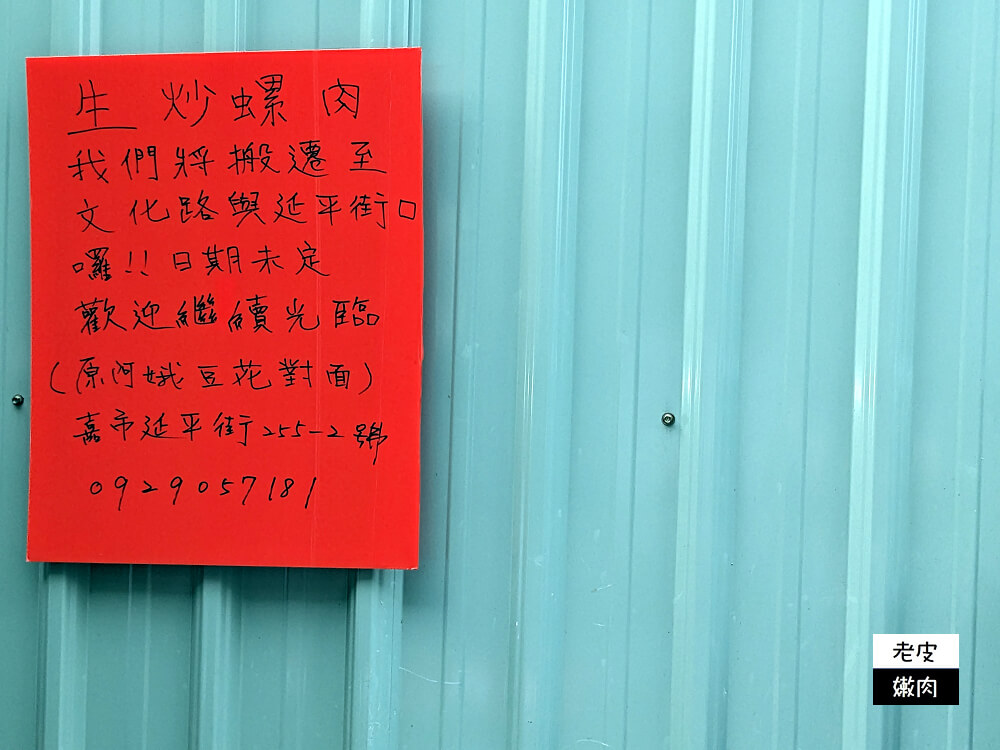 生炒螺肉
我們將搬遷至
文化路與延平街口
囉!!日期未定
歡迎繼續光臨
(原阿娥豆花對面)
嘉市延平街255-2號
0929057181
老皮
嫩肉